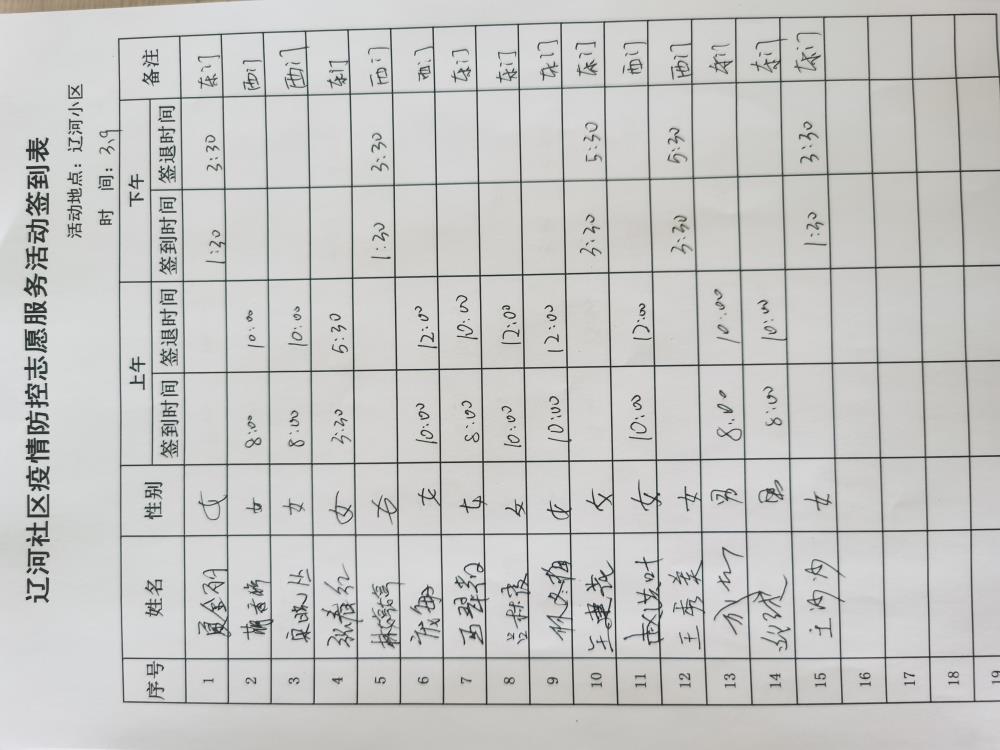 辽河社区疫情防控志愿服务活动签到表
活动地点：辽河小区
时 间：3.9
序号 姓名 性别 上午 下午 备注
签到时间 签退时间 签到时间 签退时间
1 女 1:30 3:30 东门
2 女 8:00 10:00 西门
3 女 8:00 10:00 西门
4 女 3:30 5:30 东门
5 女 1:30 3:30 西门
6 女 10:00 12:00 西门
7 女 8:00 10:00 东门
8 女 10:00 12:00 东门
9 女 10:00 12:00 东门
10 女 3:30 5:30 东门
11 女 10:00 12:00 西门
12 王秀美 女 3:30 5:30 西门
13 男 8:00 10:00 东门
14 男 8:00 10:00 东门
15 女 1:30 3:30 东门
16
17
18
19